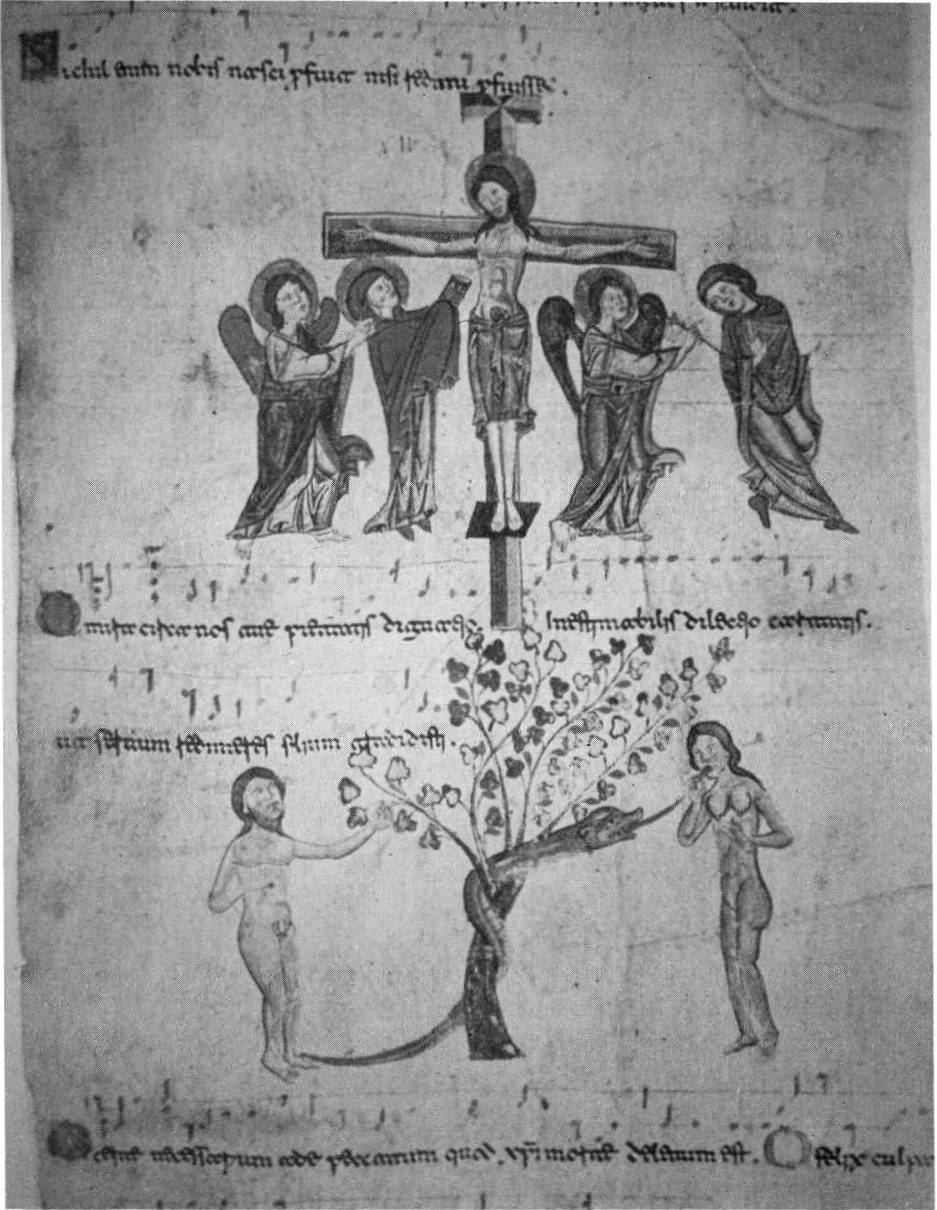 Nichil enim nobis nasci pfuit nisi redimi pfuisset.
O mira circa nos tue pietatis dignatio. Inestimabilis dilectio caritatis.
ut servum redimeres filium tradidisti.
O certe necessarium ade peccatum quod xpi morte deletum est. O felix culpa